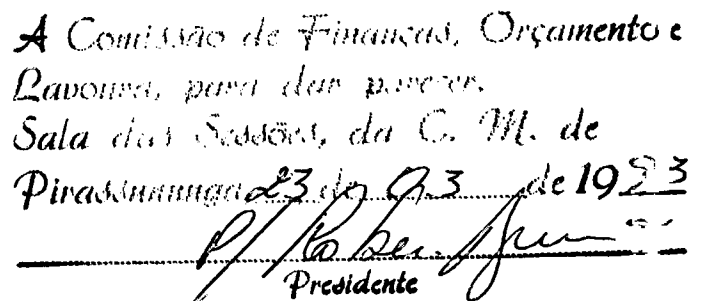 A Comissão de Finanças, Orçamento e
Lavoura, para dar parecer.
Sala das Sessões, da C. M. de
Pirassununga 23 de 03 de 1993
Presidente